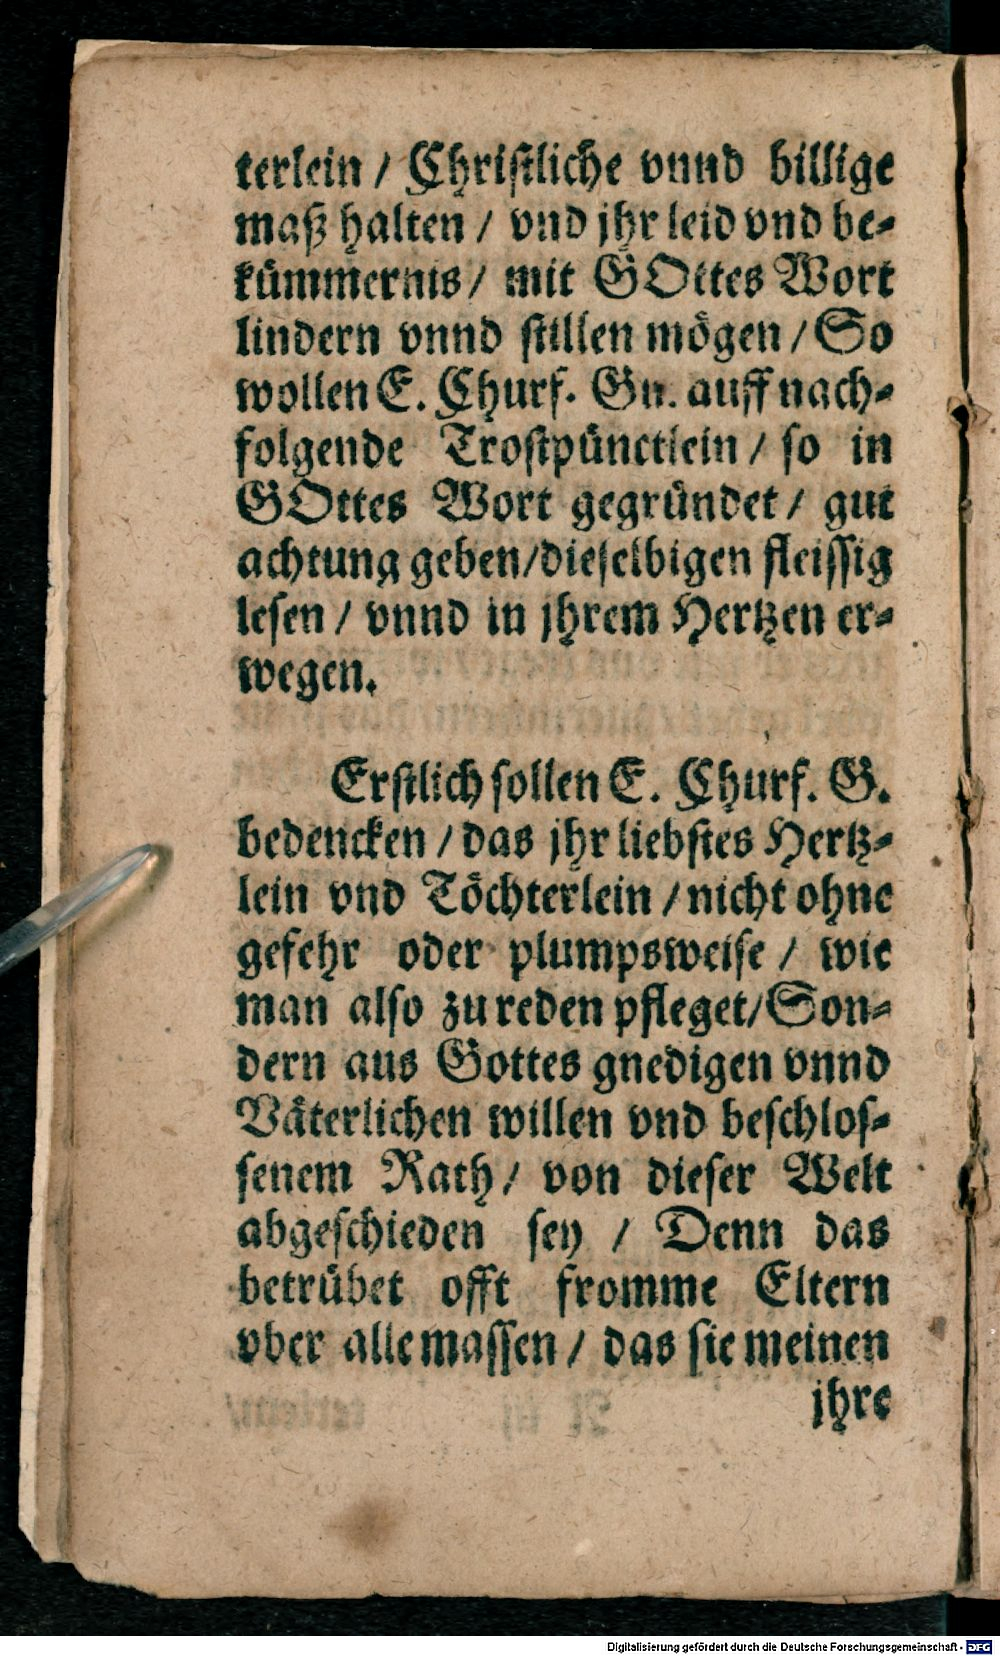 terlein / Christliche vnnd billige
maß halten / vnd jhr leid vnd be-
kümmernis / mit GOttes Wort
lindern vnnd stillen mögen / So
wollen E. Churf. Gn. auff nach-
folgende Trostpünctlein / so in
GOttes Wort gegründet / gut
achtung geben / dieselbigen fleissig
lesen / vnnd in jhrem Hertzen er-
wegen.
Erstlich sollen E. Churf. G.
bedencken / das jhr liebstes Hertz-
lein vnd Töchterlein / nicht ohne
gefehr oder plumpsweise / wie
man also zu reden pfleget / Son-
dern aus Gottes gnedigen vnnd
Väterlichen willen vnd beschlos-
senem Rath / von dieser Welt
abgeschieden sey / Denn das
betrübet offt fromme Eltern
vber alle massen / das sie meinen
jhre
Digitalisierung gefördert durch die Deutsche Forschungsgemeinschaft - DFG